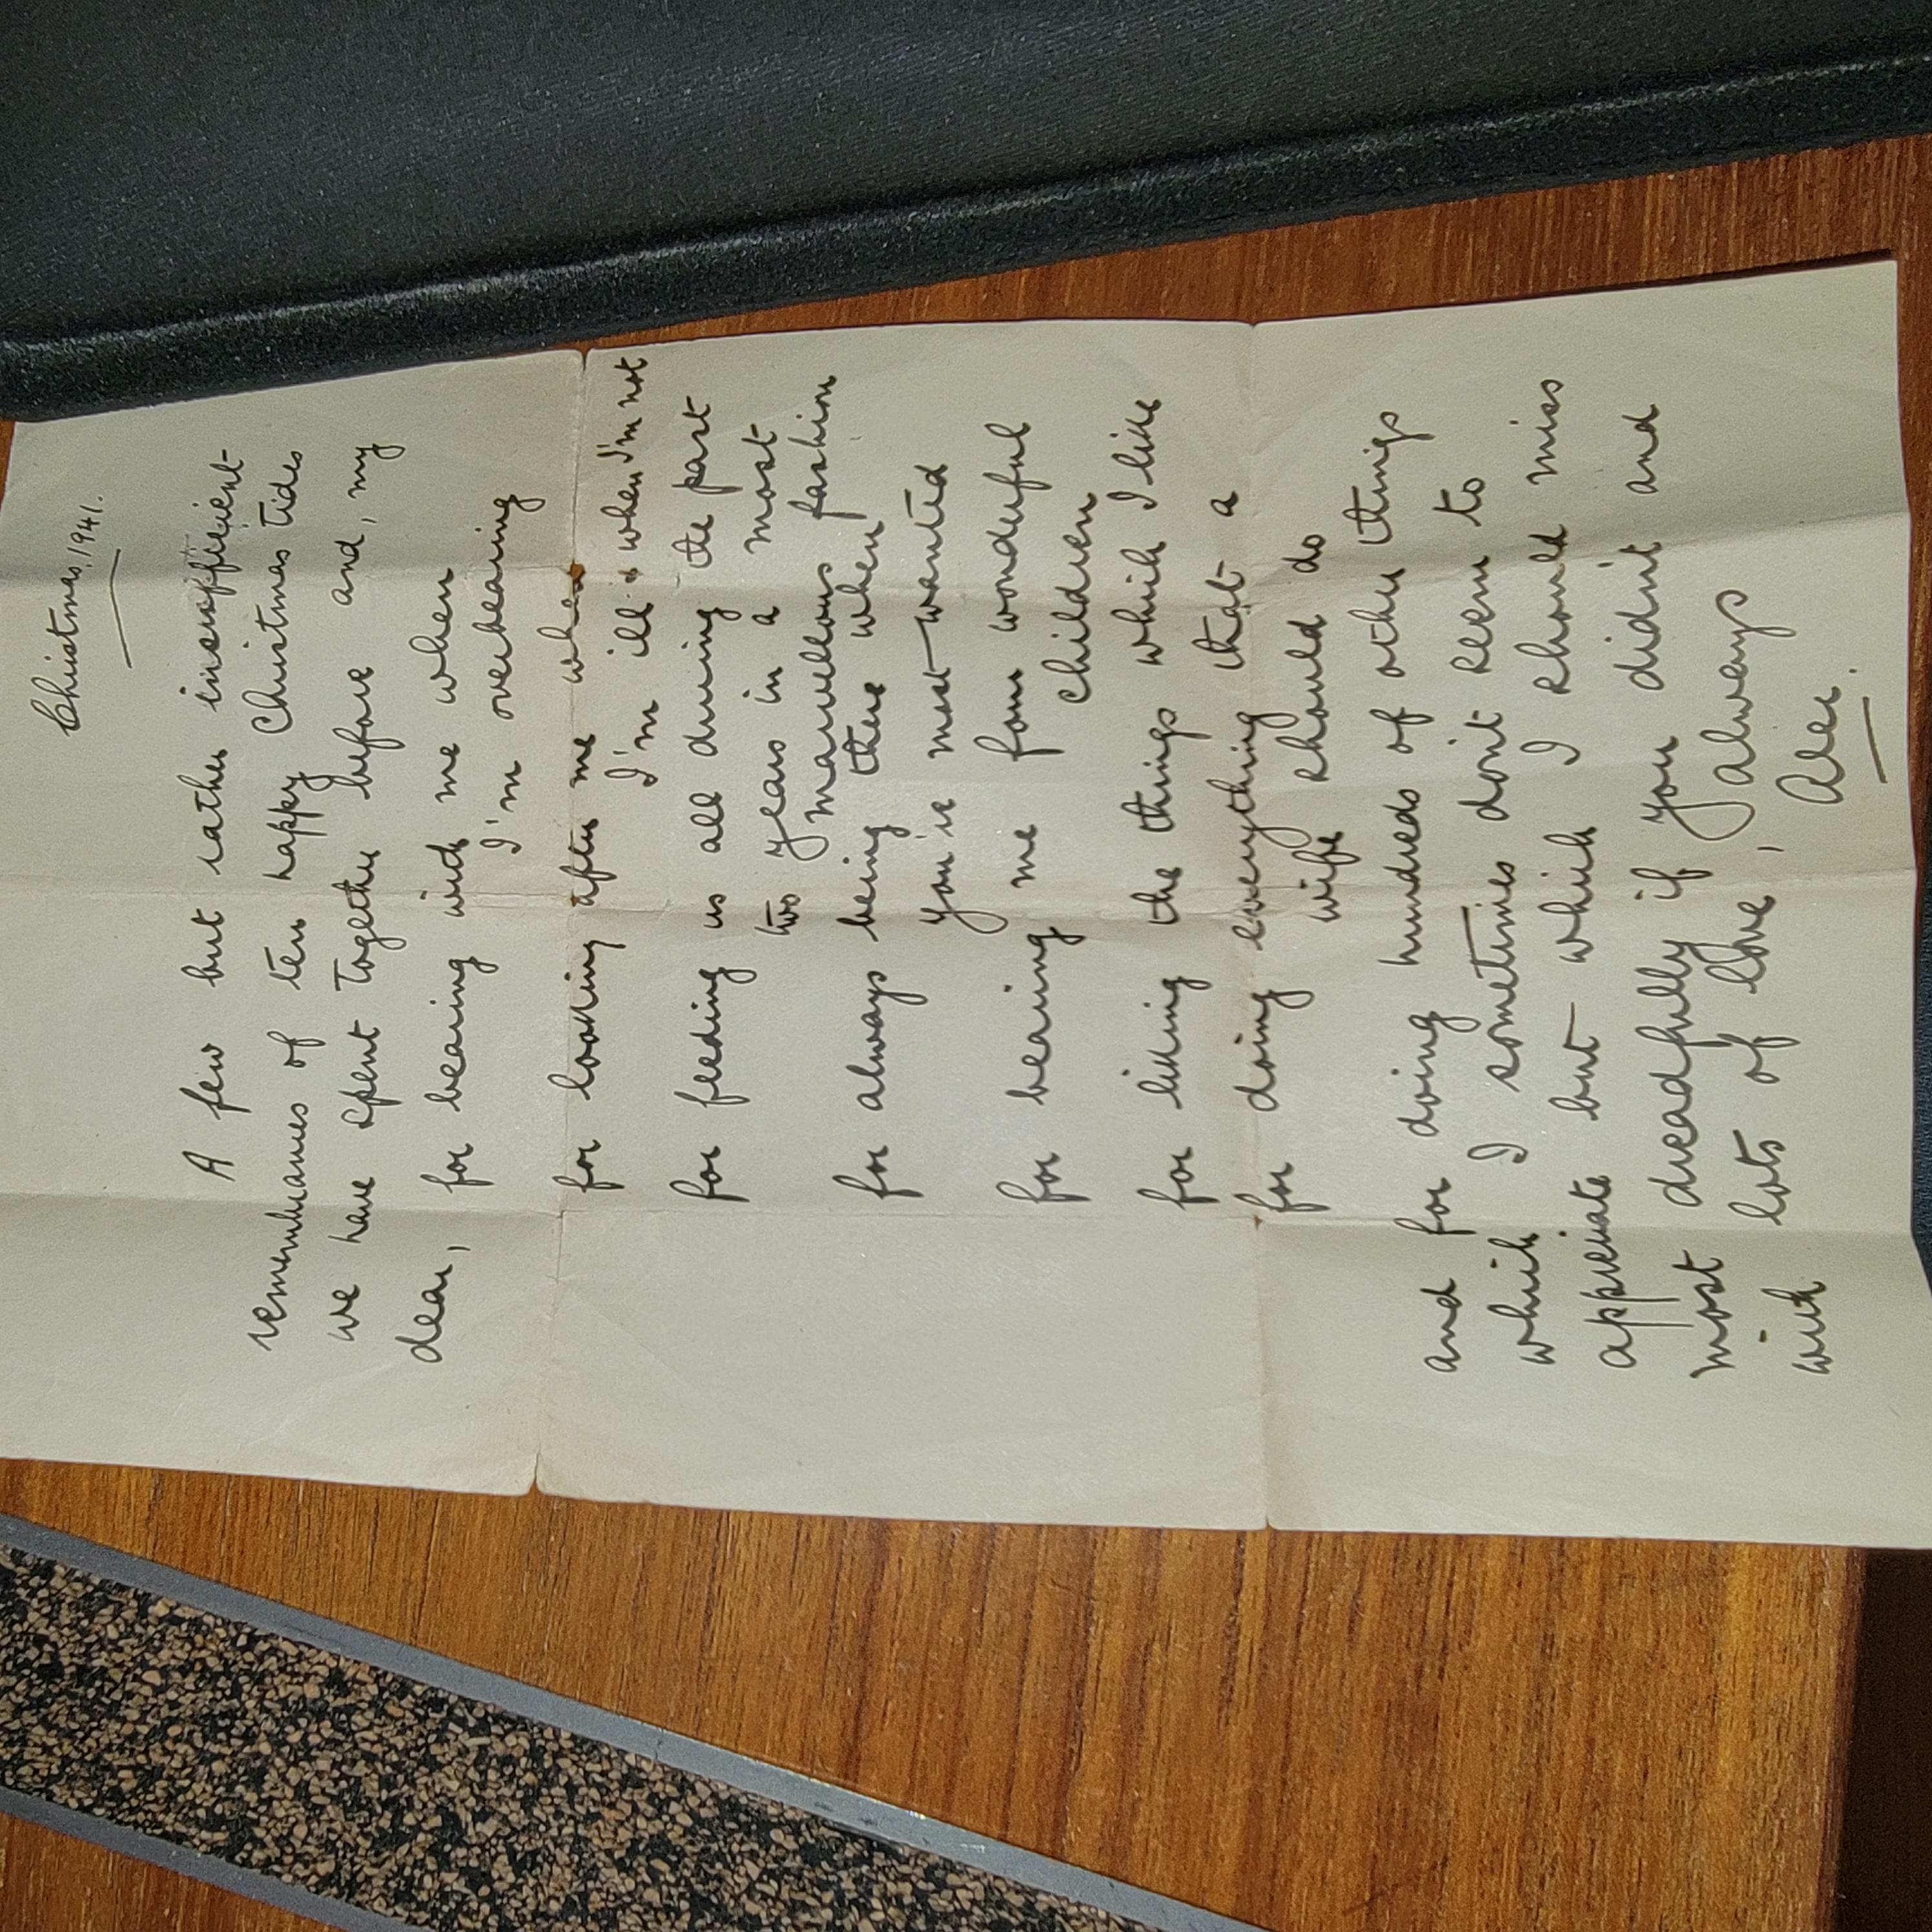 Christmas, 1941.
A few but rather insufficient
remembrances of ten happy Christmas tides
we have spent together before and, my
dear, for bearing with me when
I'm overbearing
for looking after me when
I'm ill & when I'm not
for feeding us all during the past
two years in a most
marvellous fashion
for always being there when
you're most wanted
for bearing me four wonderful
children
for liking the things which I like
for doing everything that a
wife should do
and for doing hundreds of other things
which I sometimes don't seem to
appreciate but which I should miss
most dreadfully if you didn't and
with lots of love, Always
Alec.